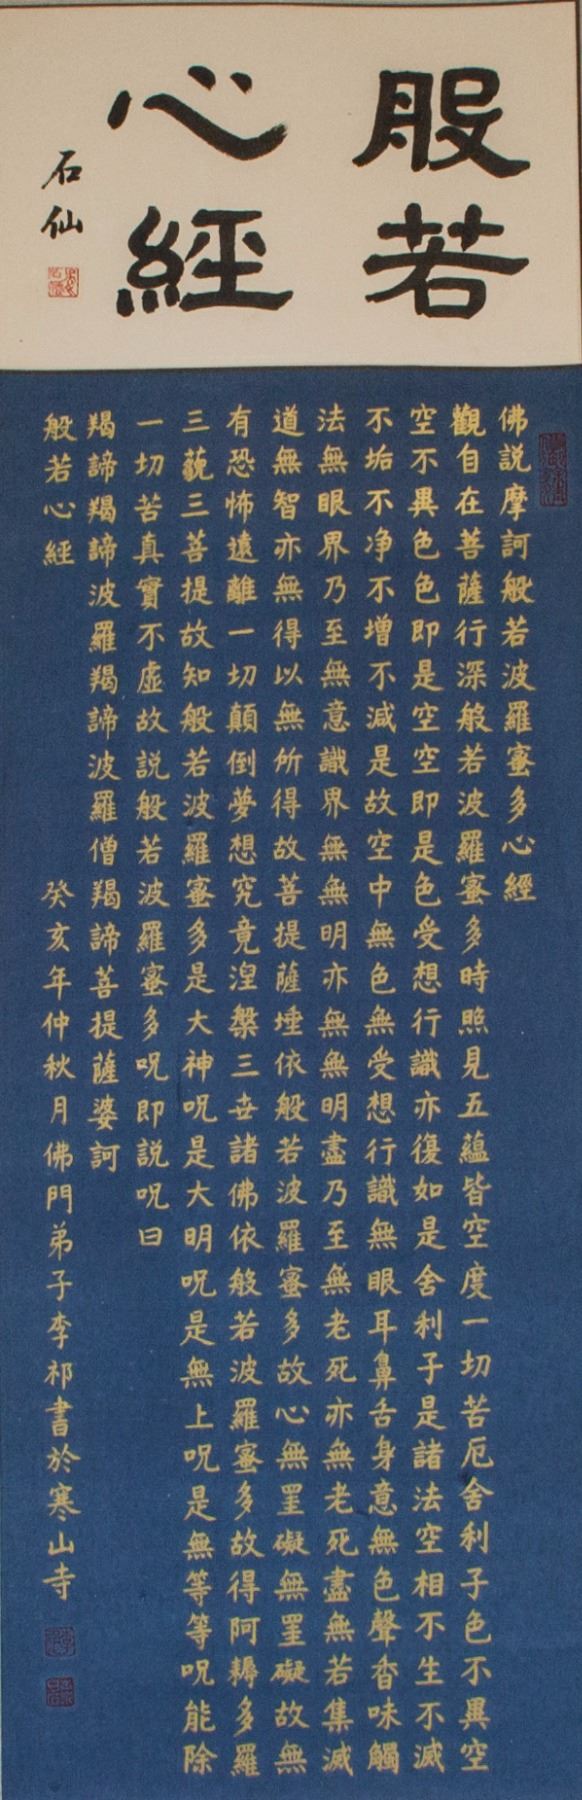 般若
心經
石仙
佛説摩訶般若波羅蜜多心經
觀自在菩薩行深般若波羅蜜多時照見五蘊皆空度一切苦厄舍利子色不異空
空不異色色即是空空即是色受想行識亦復如是舍利子是諸法空相不生不滅
不垢不净不增不減是故空中無色無受想行識無眼耳鼻舌身意無色聲香味觸
法無眼界乃至無意識界無無明亦無無明盡乃至無老死亦無老死盡無苦集滅
道無智亦無得以無所得故菩提薩埵依般若波羅蜜多故心無罣礙無罣礙故無
有恐怖遠離一切顛倒夢想究竟涅槃三世諸佛依般若波羅蜜多故得阿耨多羅
三藐三菩提故知般若波羅蜜多是大神呪是大明呪是無上呪是無等等呪能除
一切苦真實不虛故説般若波羅蜜多呪即説呪曰
羯諦羯諦波羅羯諦波羅僧羯諦菩提薩婆訶
般若心經
癸亥年仲秋月佛門弟子李祁書於寒山寺